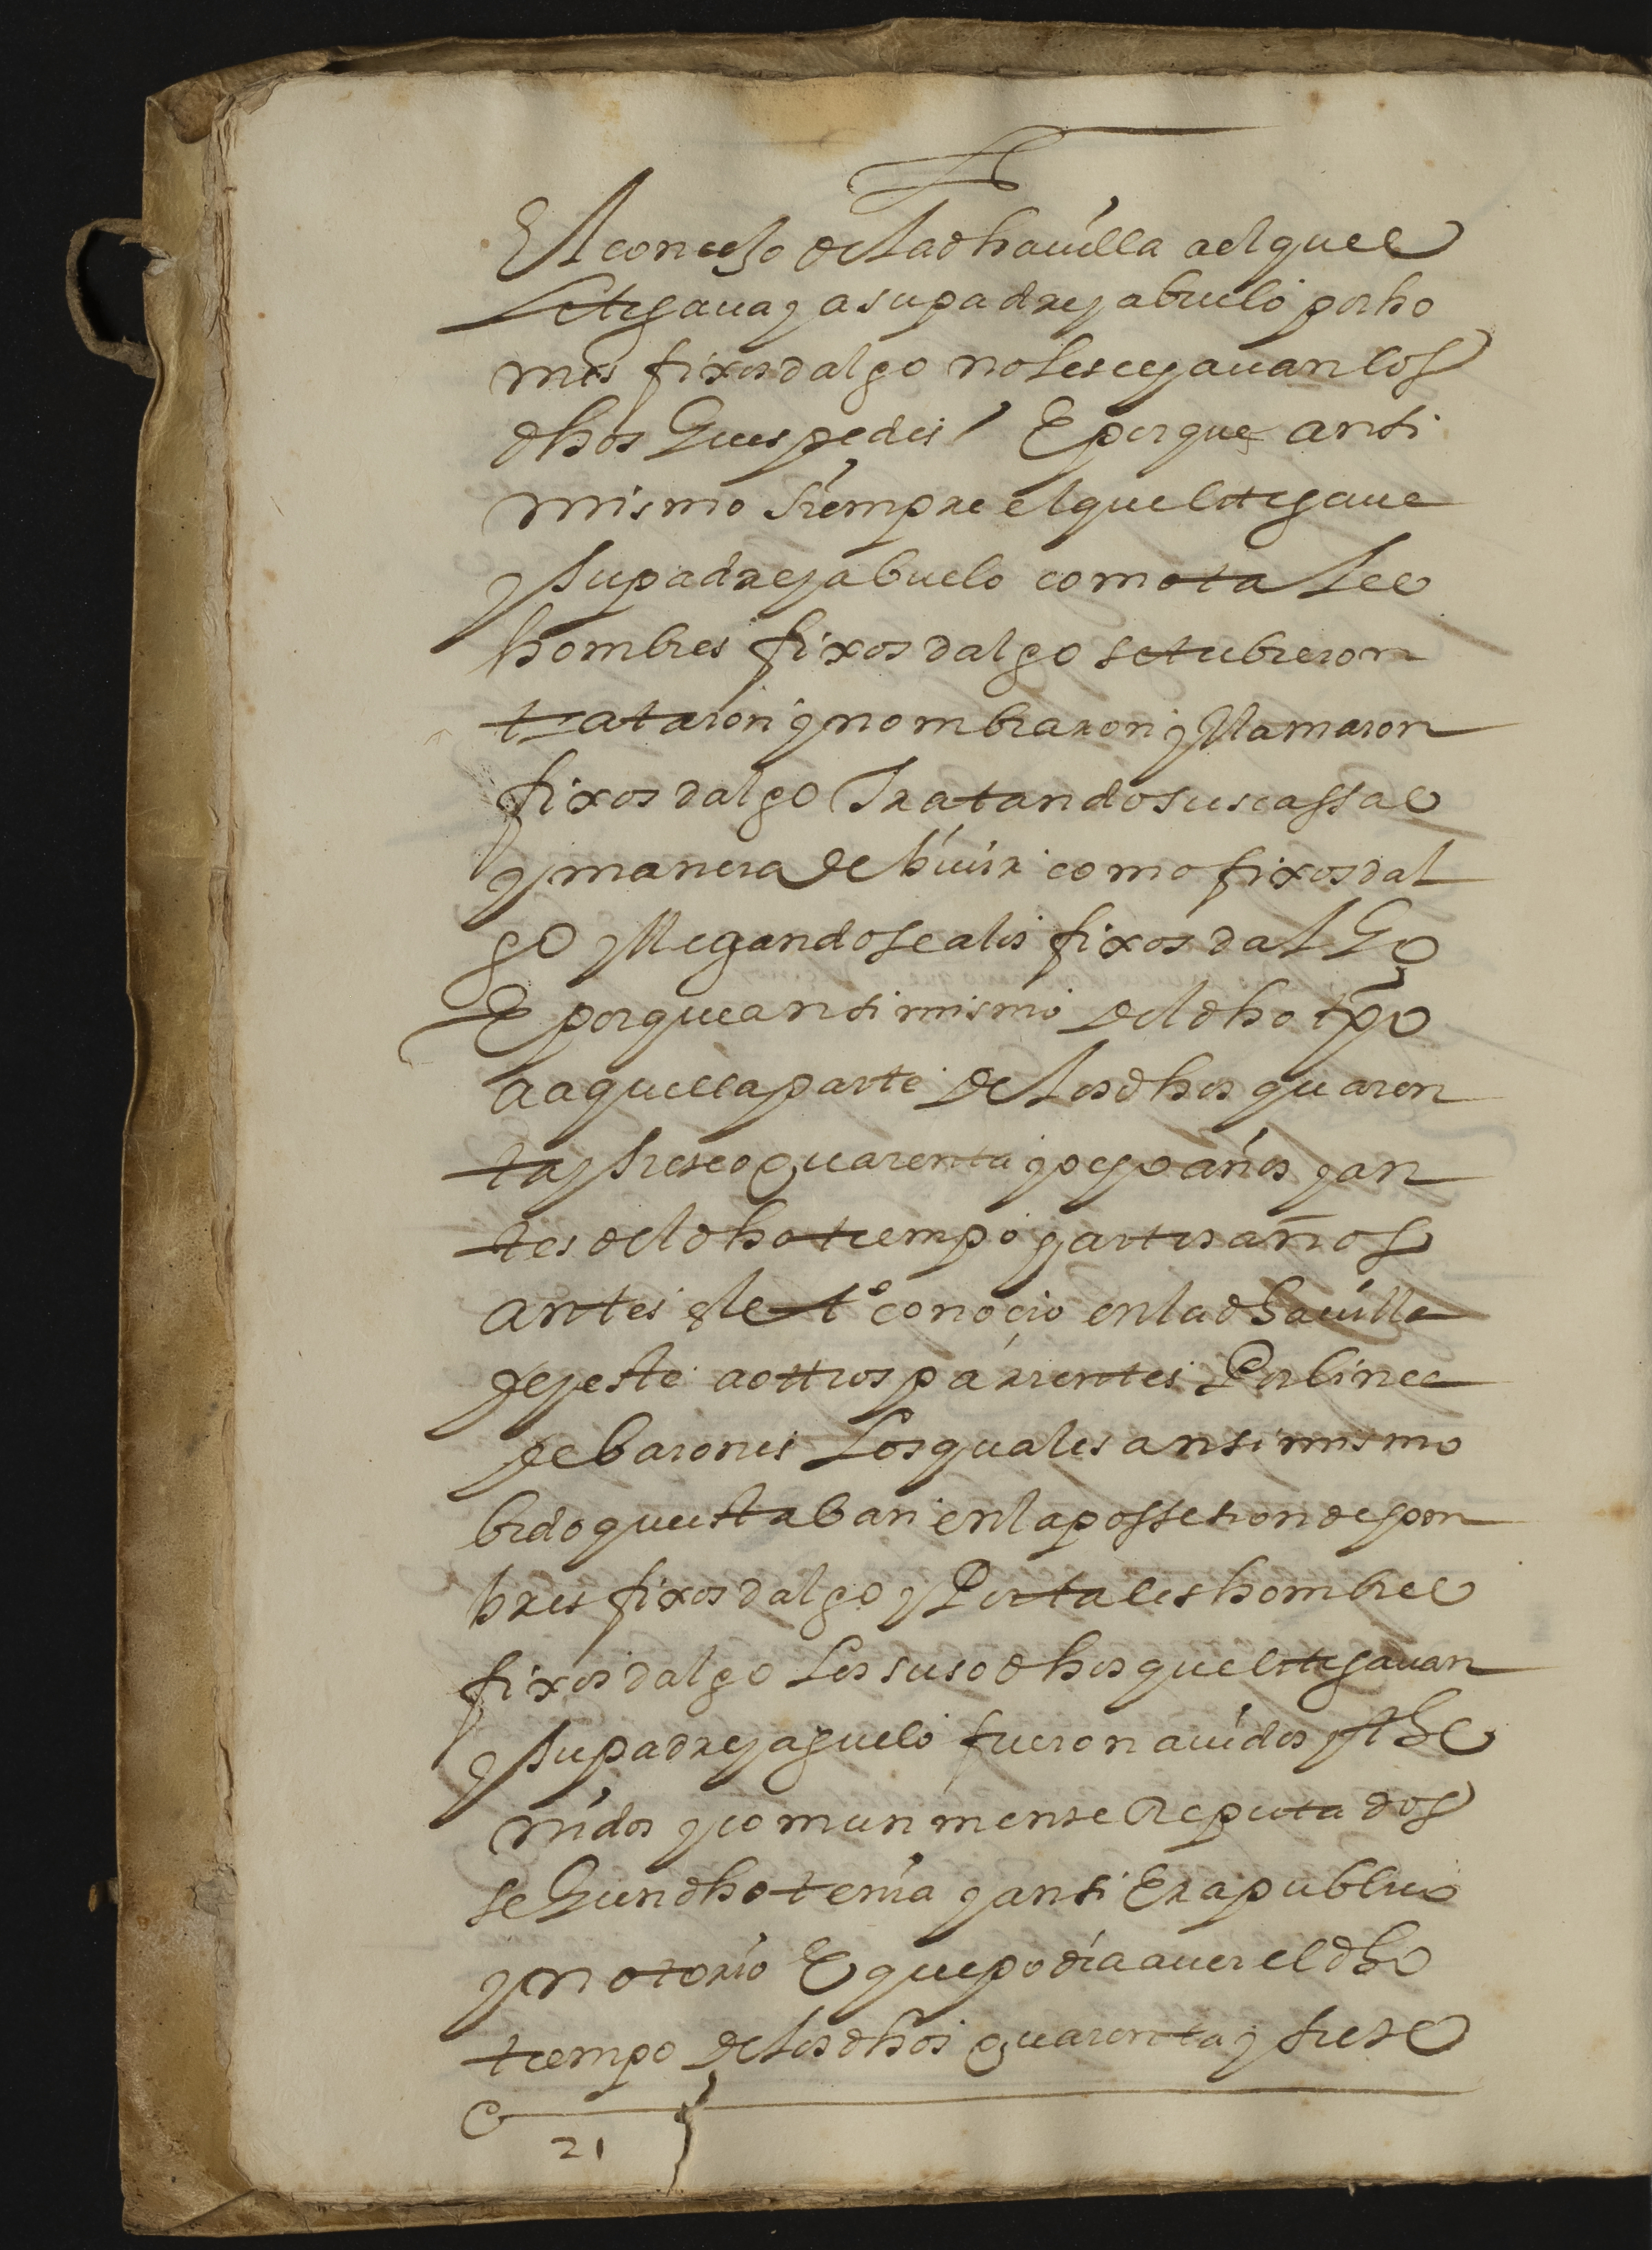 El concejo de la dha uilla al que
litigaua y a su padre y abuelo por ho
mes fixos dalgo no les echauan los
dhos guespedes / E porque ansi
mismo siempre el que litigaua
y su padre y abuelo como tales
hombres fixos dalgo se tubieron
trataron y nombraron y llamaron
fixos dalgo tratando sus cassas
y manera de biuir como fixos dal
go y llegandose a los fixos dalgo
E porque ansi mismo del dho tpo
a aquella parte de los dhos quaren
ta y siete o quarenta y ocho años y an
tes del dho tiempo y artos años
antes el to conocio en la dha uilla
de yeste a ottros parientes Por linea
de barones Los quales ansi mismo
bido que estaban en la possesion de hon
bres fixos dalgo y Por tales hombres
fixos dalgo Los suso dhos que litigauan
y su padre y aguelo fueron auidos y the
nidos y comunmente Reputados
segun dho tenia y ansi Era publico
y notorio E que podia auer el dho
tiempo de los dhos quarenta y siete
21